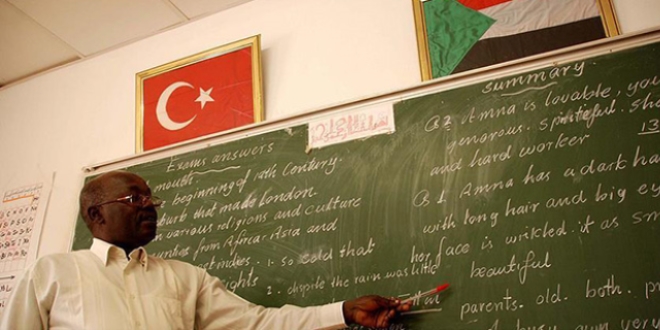 Exams answers
mouth.
beginning of 19th Century.
burb that made London.
n various religions and culture
unties from Africa, Asia and
est indies. 1- so cold that
ights 2. dispite the rain was little
summary
Q2 Amna is lovable, you
genorous. spiteful. sho
and hard worker
13
Q1 Amna has a dark ha
with long hair and big eye
her face is wrikled. it as sm
beautiful
parents. old. both. pr